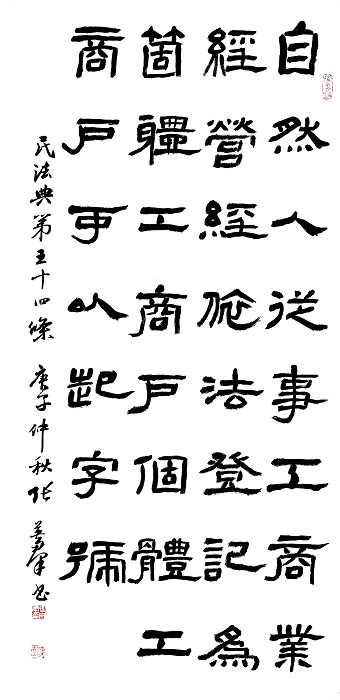 自然人從事工商業
經營經依法登記為
箇軆工商戶個體工
商戶可以起字號
民法典第五十四條 庚子仲秋 张 书